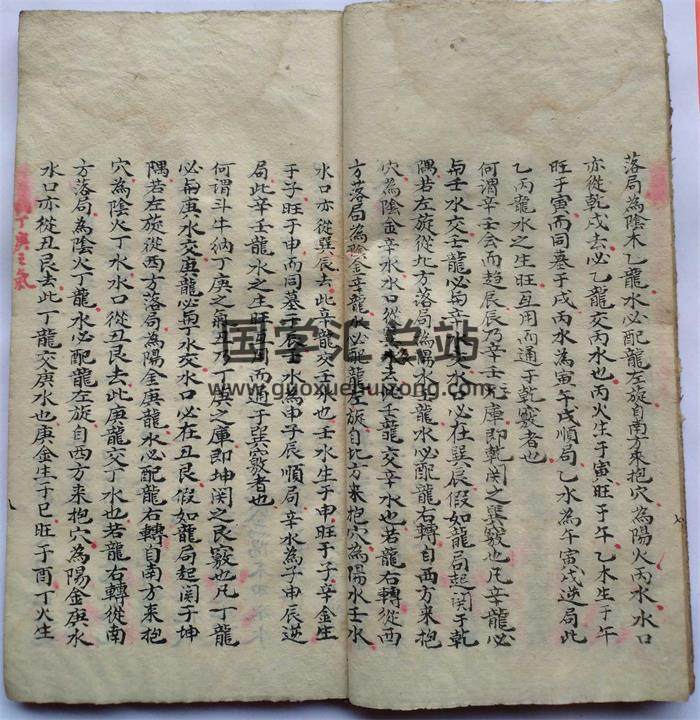 落局為陰木乙龍水必配龍左旋自南方來抱穴為陽火丙水水口
亦從乾戌去必乙龍交丙水也丙火生于寅旺于午乙木生于午
旺于寅而同墓于戌丙水為寅午戌順局乙水為午寅戌逆局此
乙丙龍水之生旺互用而通于乾竅者也
何謂辛壬会而趨辰辰乃辛壬之庫即乾関之巽竅也凡辛龍必
與壬水交壬龍必與辛水交水口必在巽辰假如龍局起関于乾
隅若左旋從北方落局為陽水壬龍水必配龍右轉自西方來抱
穴為陰金辛水水口從巽辰去此壬龍交辛水也若龍右轉從西
方落局為陰金辛龍水必配龍左旋自北方來抱穴為陽水壬水
水口亦從巽辰去此辛龍交壬水也壬水生于申旺于子辛金生
于子旺于申而同墓于辰壬水為申子辰順局辛水為子申辰逆
局此辛壬龍水之生旺互用而通于巽竅者也
何謂斗牛納丁庚之氣丑乃丁庚之庫即坤関之艮竅也凡丁龍
必與庚水交庚龍必與丁水交水口必在丑艮假如龍局起関于坤
隅若左旋從西方落局為陽金庚龍水必配龍右轉自南方來抱
穴為陰火丁水水口從丑艮去此庚龍交丁水也若龍右轉從南
方落局為陰火丁龍水必配龍左旋自西方來抱穴為陽金庚水
水口亦從丑艮去此丁龍交庚水也庚金生于巳旺于酉丁火生
丁庚之氣
国学汇总站
www.guoxuehuizong.com